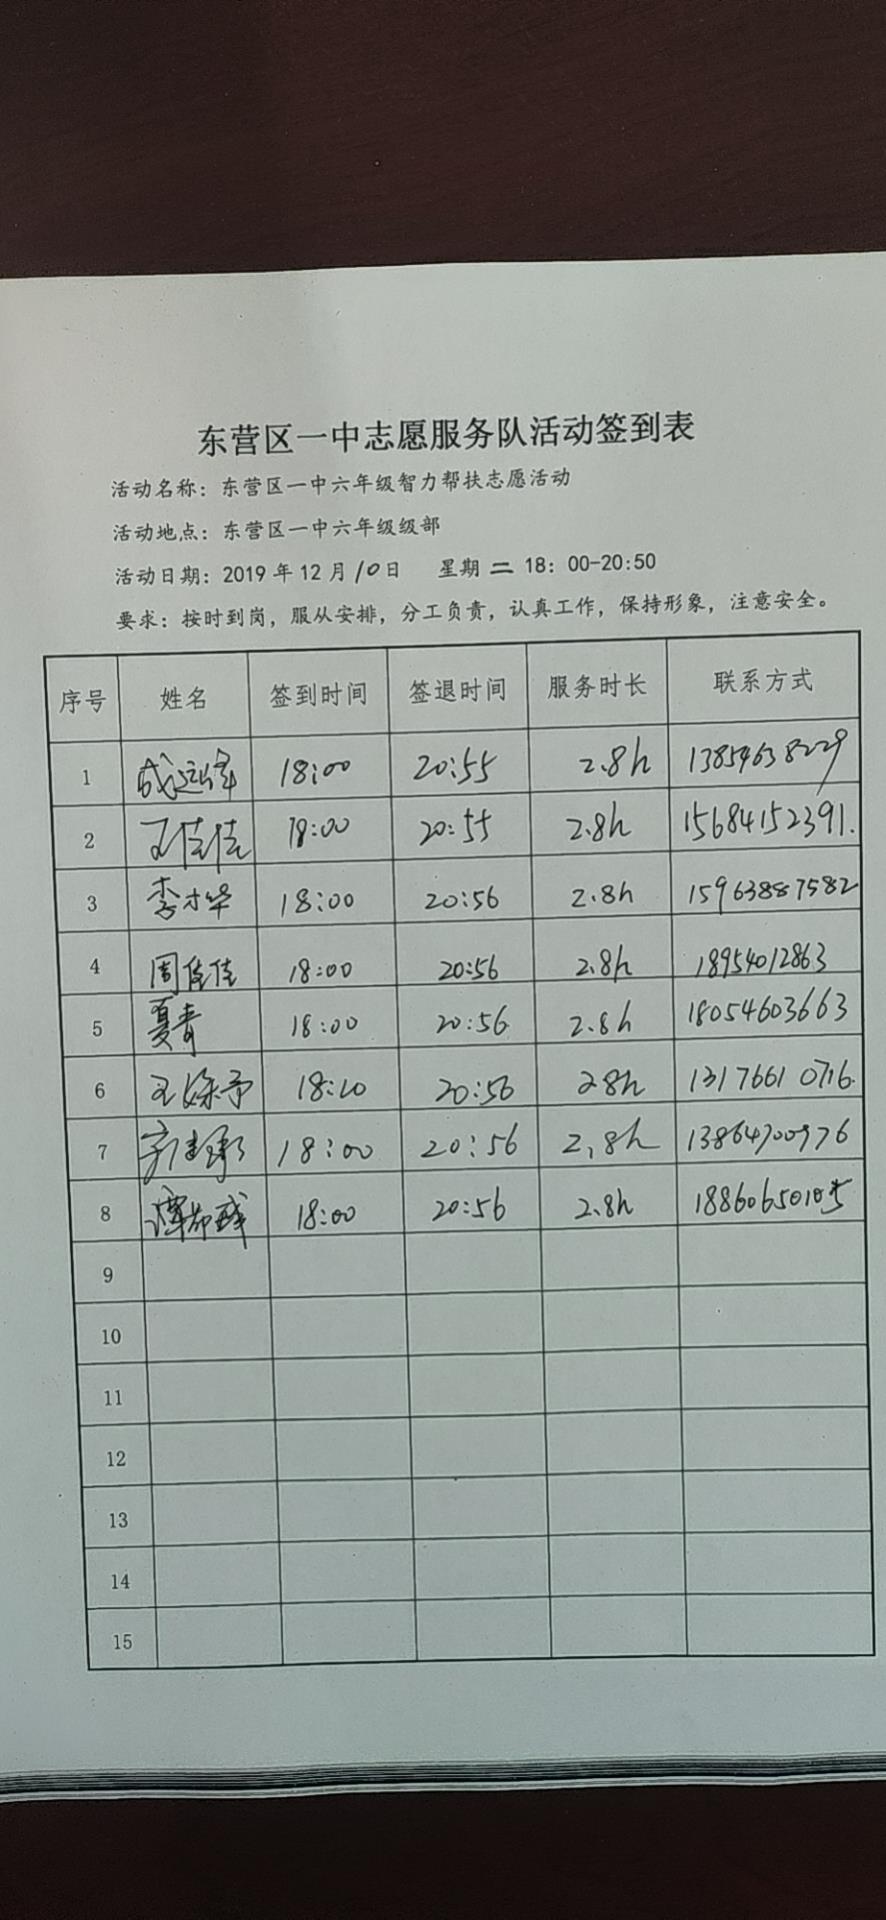 东营区一中志愿服务队活动签到表
活动名称：东营区一中六年级智力帮扶志愿活动
活动地点：东营区一中六年级级部
活动日期：2019 年 12 月 10 日 星期 二 18：00-20:50
要求：按时到岗，服从安排，分工负责，认真工作，保持形象，注意安全。
序号 姓名 签到时间 签退时间 服务时长 联系方式
1 18:00 20:55 2.8h 13854638229
2 王佳佳 18:00 20:55 2.8h 15684152391.
3 李才华 18:00 20:56 2.8h 15963887582
4 周佳佳 18:00 20:56 2.8h 18954012863
5 夏青 18:00 20:56 2.8h 18054603663
6 20:56 2.8h 13176610716.
7 18:00 20:56 2.8h 13864700976
8 18:00 20:56 2.8h
9
10
11
12
13
14
15